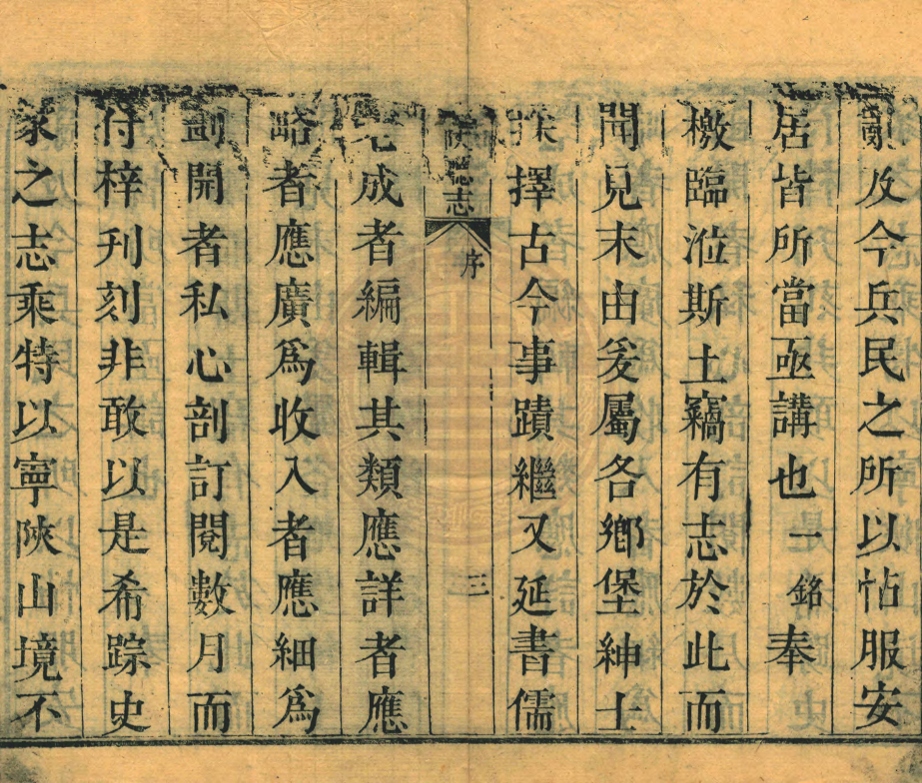 亂及今兵民之所以怗服安
居皆所當亟講也一銘奉
檄臨涖斯土竊有志於此而
聞見末由爰屬各鄉堡紳士
採擇古今事蹟繼又延書儒
陝廳志 序 三
老成者編輯其類應詳者應
略者應廣爲收入者應細爲
開者私心剖訂閱數月而
付梓刊刻非敢以是希踪史
家之志乘特以寧陝山境不